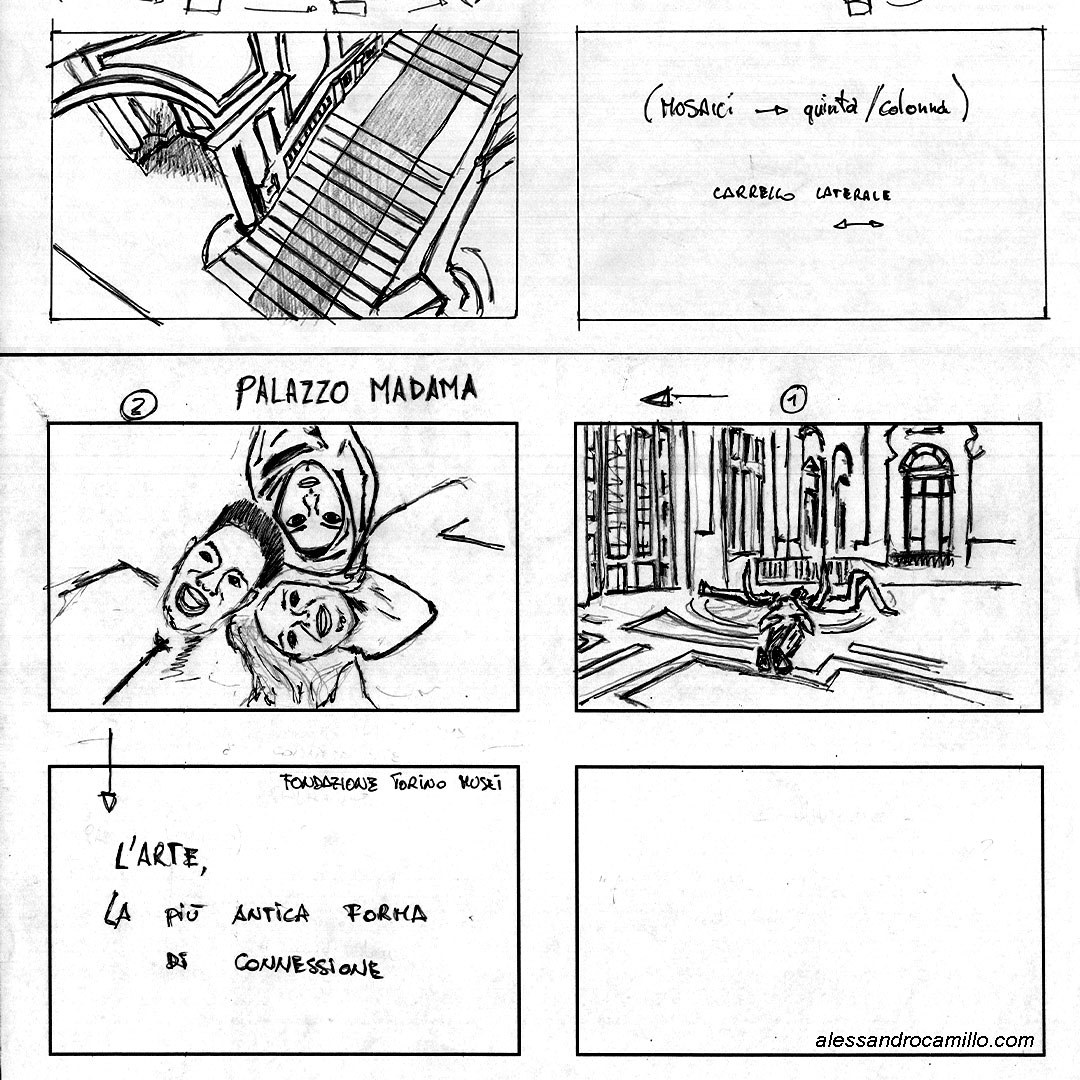 (MOSAICI → quinta/colonna)
CARRELLO LATERALE
↔
PALAZZO MADAMA
② ← ①
FONDAZIONE TORINO MUSEI
L'ARTE,
LA PIÙ ANTICA FORMA
DI CONNESSIONE
alessandrocamillo.com